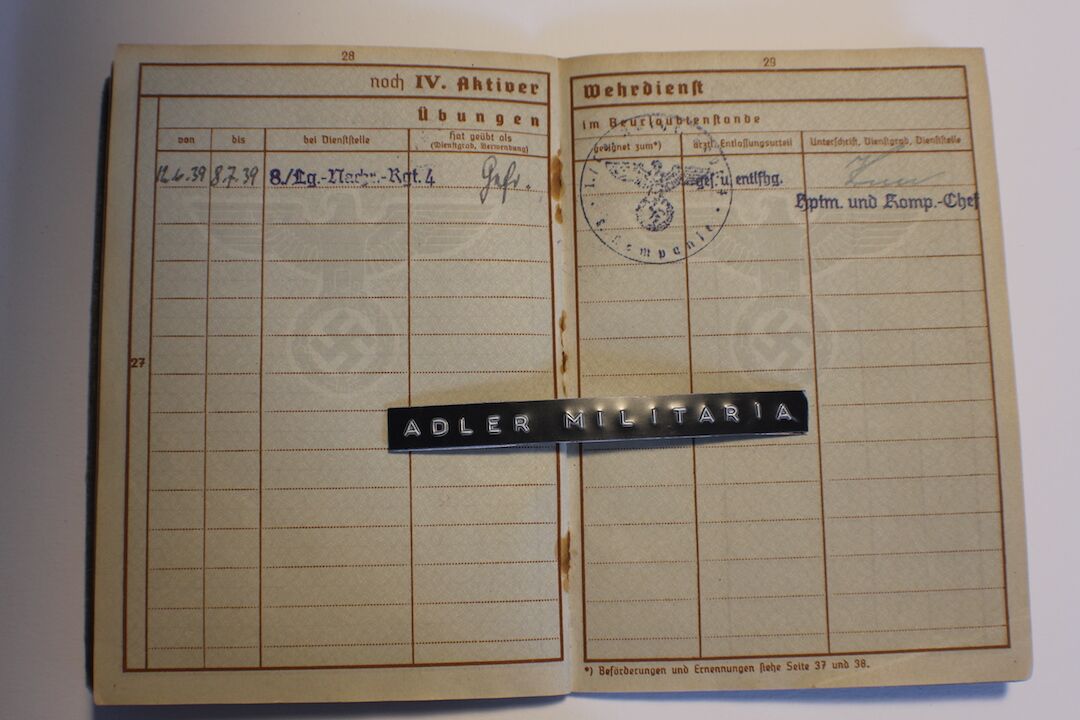 28
noch IV. Aktiver
Übungen
von
bis
bei Dienststelle
Hat geübt als
(Dienstgrad, Verwendung)
12.6.39
8.7.39
8./Lg.-Nachr.-Rgt. 4
Gefr.
27
29
Wehrdienst
im Beurlaubtenstande
geeignet zum*)
ärztl. Entlassungsurteil
Unterschrift, Dienstgrad, Dienststelle
ges. u. entlfhg.
Hptm. und Komp.-Chef
8. Kompanie
ADLER MILITARIA
*) Beförderungen und Ernennungen siehe Seite 37 und 38.